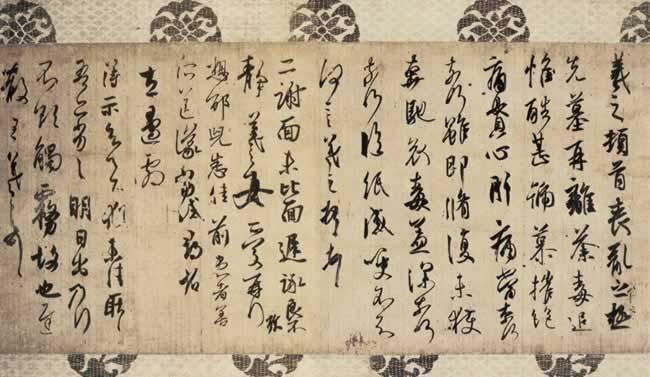 羲之頓首喪亂之極
先墓再離荼毒追
惟酷甚號慕摧絶
痛貫心肝痛當奈何
奈何雖即脩復未獲
奔馳哀毒益深奈何
奈何臨紙感哽不知
何言羲之頓首頓首
二謝面未比面遲詠良不
静羲之女愛再拜
想邵兒悉佳前患者善
所送議當試尋省
左邊劇
得示知足下猶未佳耿耿
吾亦劣劣明日出乃行
不欲觸霧故也遲
散王羲之頓首